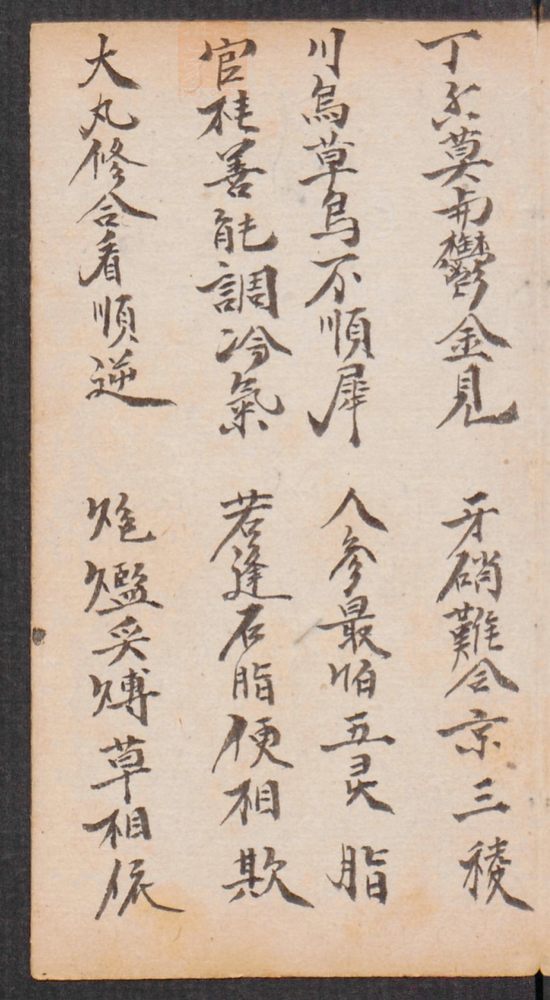 丁香莫与鬱金見 牙硝難合京三稜
川烏草烏不順犀 人參最怕五灵脂
官桂善能調冷氣 若逢石脂便相欺
大丸修合看順逆 炮爁炙煿草相依